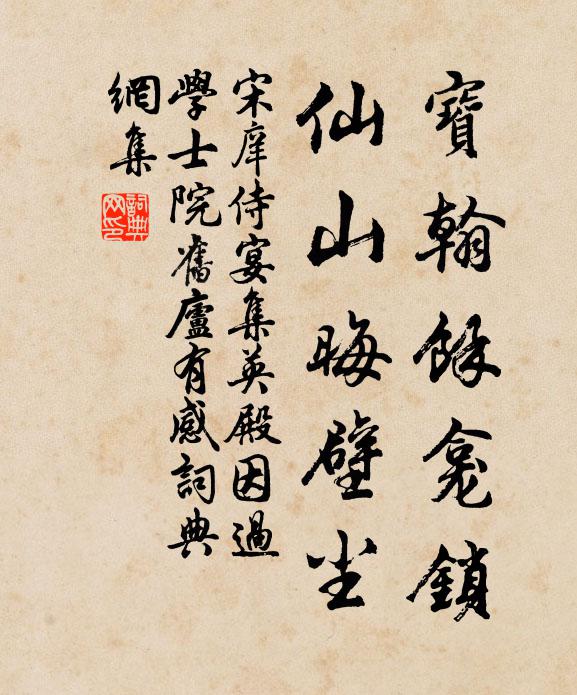 寶翰餘龕鎖
仙山晦壁尘
宋庠侍宴集英殿因過
學士院舊廬有感詞典
網集
詞典
网印